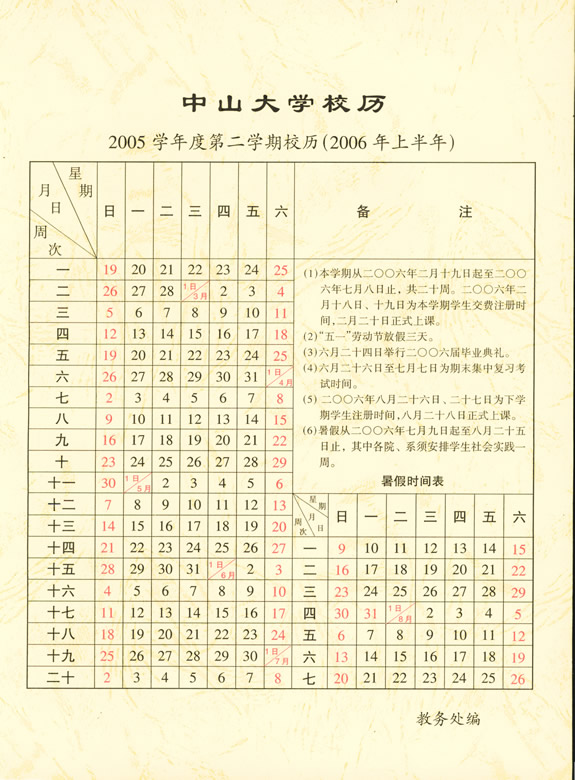 中山大学校历
2005 学年度第二学期校历(2006 年上半年)
星期
月
日
周次
日 一 二 三 四 五 六
备 注
一 19 20 21 22 23 24 25
二 26 27 28 1日/3月 2 3 4
三 5 6 7 8 9 10 11
四 12 13 14 15 16 17 18
五 19 20 21 22 23 24 25
六 26 27 28 29 30 31 1日/4月
七 2 3 4 5 6 7 8
八 9 10 11 12 13 14 15
九 16 17 18 19 20 21 22
十 23 24 25 26 27 28 29
十一 30 1日/5月 2 3 4 5 6
十二 7 8 9 10 11 12 13
十三 14 15 16 17 18 19 20
十四 21 22 23 24 25 26 27
十五 28 29 30 31 1日/6月 2 3
十六 4 5 6 7 8 9 10
十七 11 12 13 14 15 16 17
十八 18 19 20 21 22 23 24
十九 25 26 27 28 29 30 1日/7月
二十 2 3 4 5 6 7 8
(1)本学期从二〇〇六年二月十九日起至二〇〇
六年七月八日止，共二十周。二〇〇六年二
月十八日、十九日为本学期学生交费注册时
间,二月二十日正式上课。
(2)“五一”劳动节放假三天。
(3)六月二十四日举行二〇〇六届毕业典礼。
(4)六月二十六日至七月七日为期末集中复习考
试时间。
(5)二〇〇六年八月二十六日、二十七日为下学
期学生注册时间,八月二十八日正式上课。
(6)暑假从二〇〇六年七月九日起至八月二十五
日止，其中各院、系须安排学生社会实践一
周。
暑假时间表
星期
月
日
周次
日 一 二 三 四 五 六
一 9 10 11 12 13 14 15
二 16 17 18 19 20 21 22
三 23 24 25 26 27 28 29
四 30 31 1日/8月 2 3 4 5
五 6 7 8 9 10 11 12
六 13 14 15 16 17 18 19
七 20 21 22 23 24 25 26
教务处编